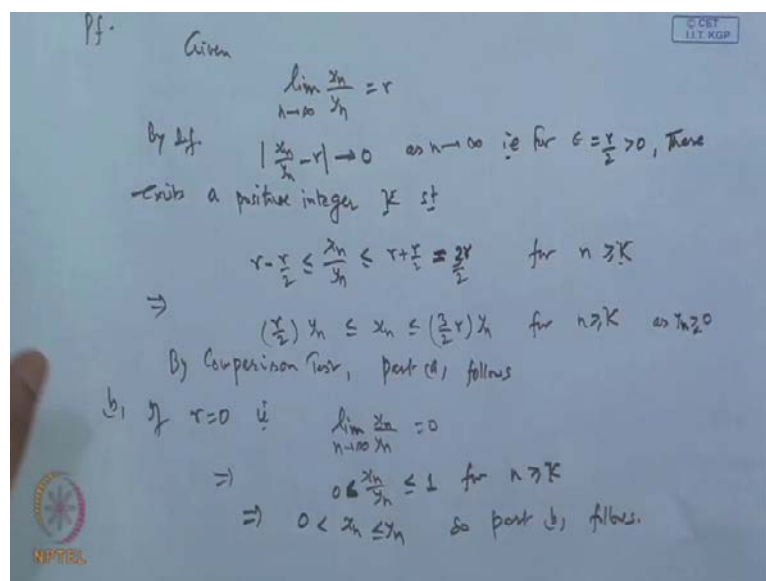 Pf.
© CET
I.I.T. KGP
Given
lim_{n→∞} x_n/y_n = r
By def. |x_n/y_n - r| → 0 as n→∞ ie for ε = r/2 > 0, There
exists a positive integer K st
r - r/2 ≤ x_n/y_n ≤ r + r/2 = 3r/2 for n ≥ K
⇒
(r/2) y_n ≤ x_n ≤ (3/2 r) y_n for n ≥ K as y_n ≥ 0
By Comparison Test, part (a), follows
b, If r=0 ie lim_{n→∞} x_n/y_n = 0
⇒ 0 < x_n/y_n ≤ 1 for n ≥ K
⇒ 0 < x_n ≤ y_n so part b, follows.
NPTEL